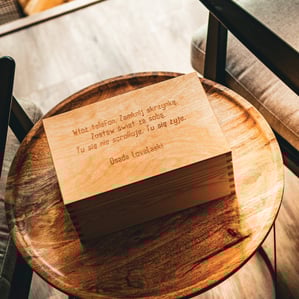 Włóż telefon. Zamknij skrzynkę.
Zostaw świat za sobą.
Tu się nie scrolluje. Tu się żyje.
Osada